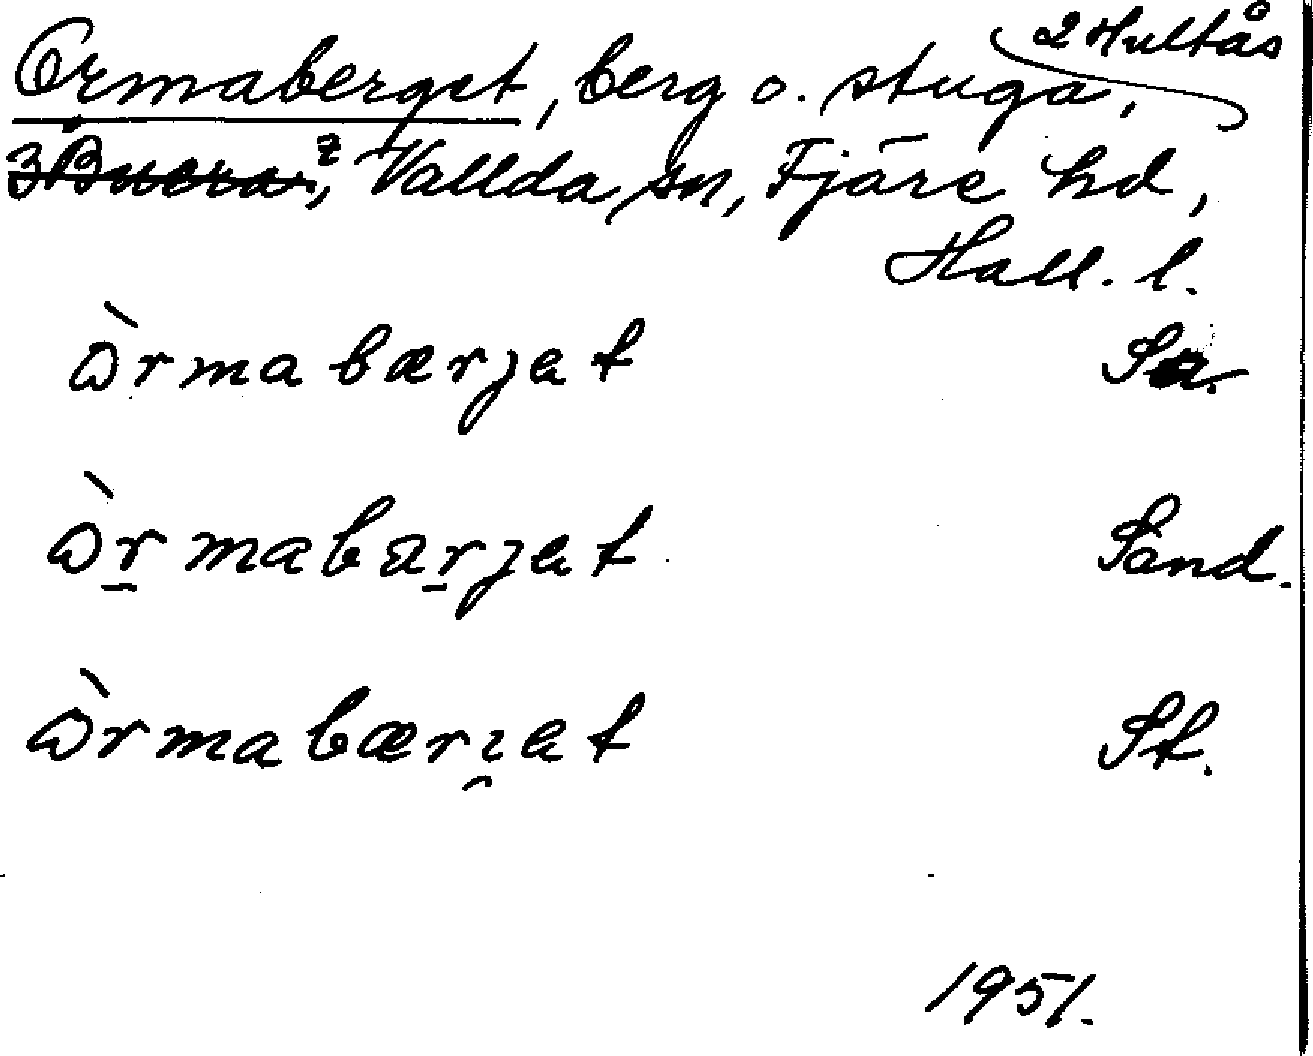 Ormaberget, berg o. stuga, 2 Hultås
3 Buera?, Vallda sn, Fjäre hd,
Hall. l.
ɷ̀rmabærjet Sa.
ɷ̀r̠mabɑr̠jet Sand.
ɷ̀rmabærı̯et St.
1951.